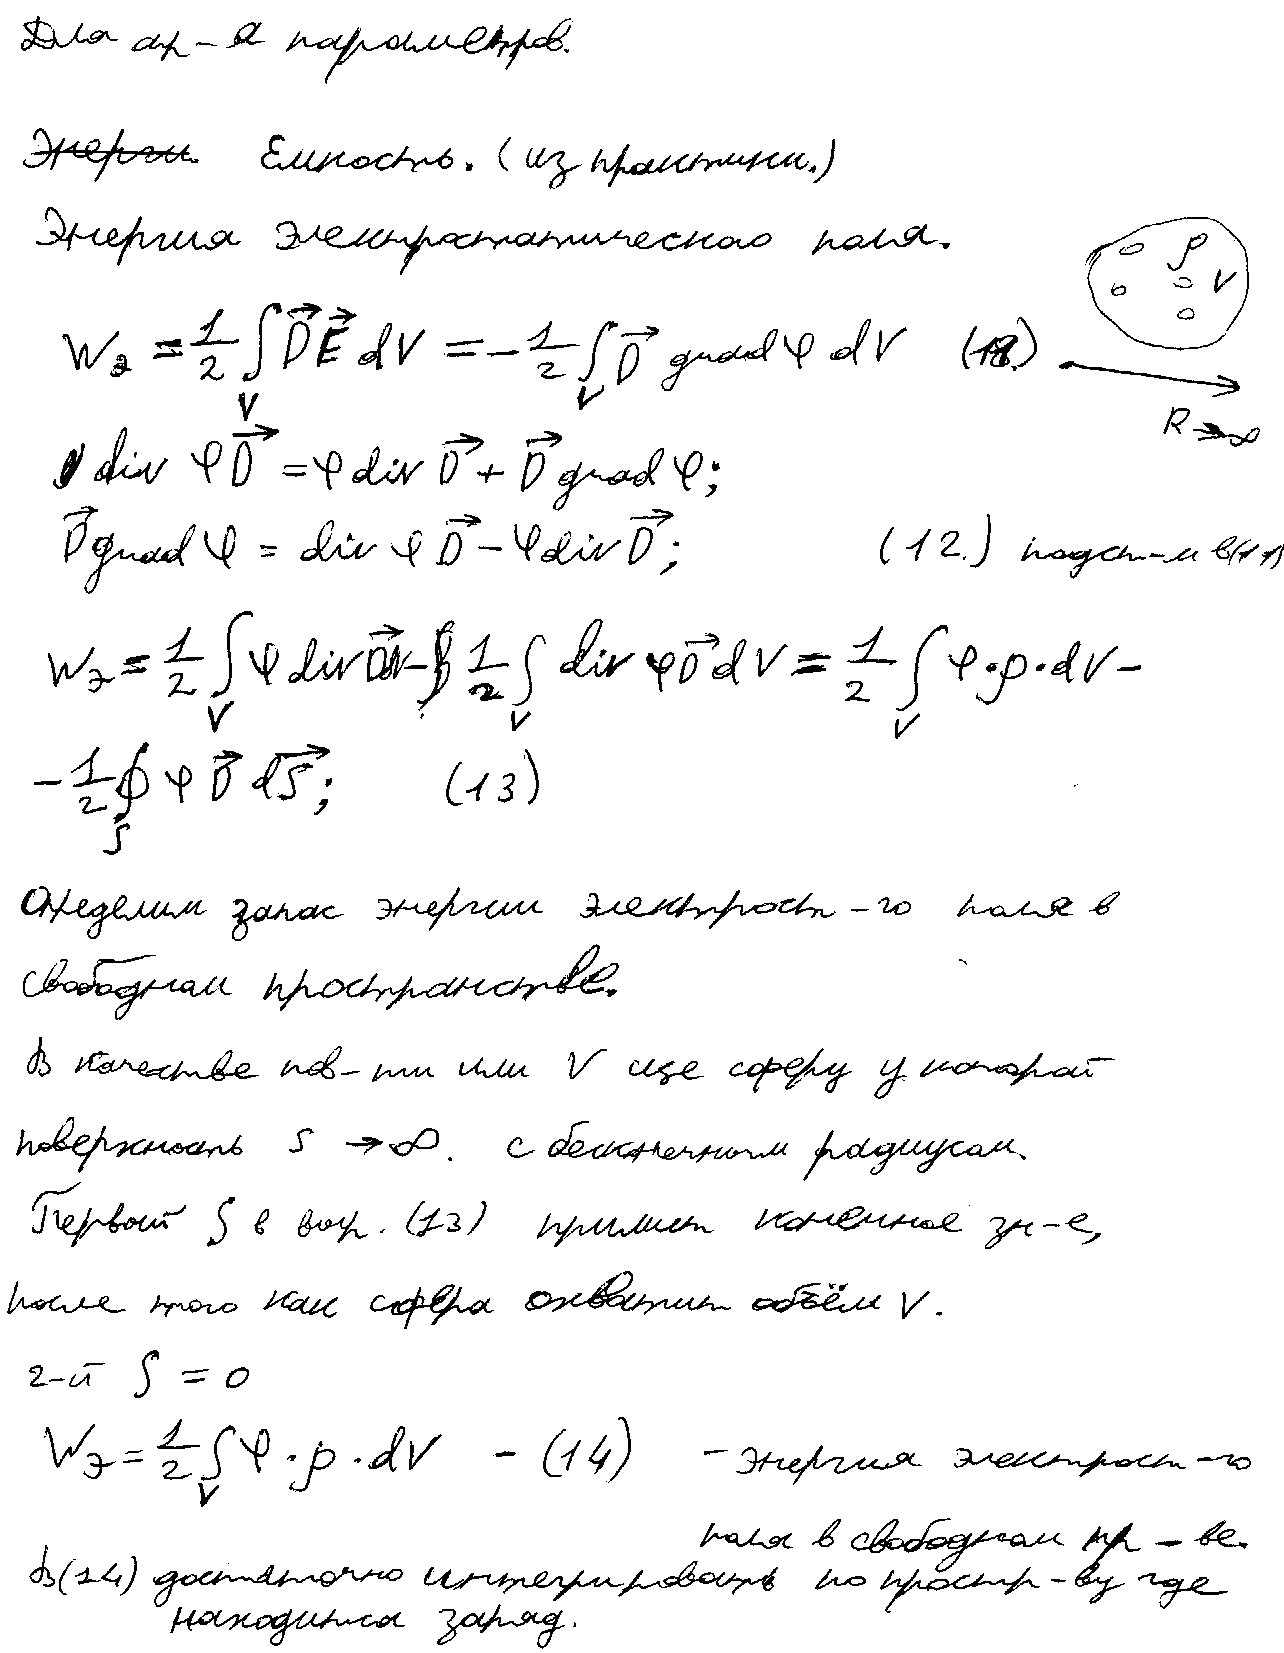 Для ар-я параметров.
Энерги Емкость. (из практики.)
Энергия электростатического поля.
ρ
V
Wэ = 1/2 ∫V D⃗ E⃗ dV = - 1/2 ∫V D⃗ grad φ dV (11.)
R → ∞
div φ D⃗ = φ div D⃗ + D⃗ grad φ;
D⃗ grad φ = div φ D⃗ - φ div D⃗; (12.) подст-м в (11)
Wэ = 1/2 ∫V φ div D⃗ dV - 1/2 ∫V div φ D⃗ dV = 1/2 ∫V φ·ρ·dV -
- 1/2 ∮S φ D⃗ dS⃗; (13)
Определим запас энергии электрост-го поля в
свободном пространстве.
В качестве пов-ти или V ище сферу у которой
поверхность S → ∞. с бесконечным радиусом.
Первый ∫ в выр. (13) примет конечное зн-е,
после того как сфера охватит объём V.
2-й ∫ = 0
Wэ = 1/2 ∫V φ·ρ·dV - (14) - энергия электрост-го
поля в свободном пр-ве.
В (14) достаточно интегрировать по простр-ву где
находится заряд.